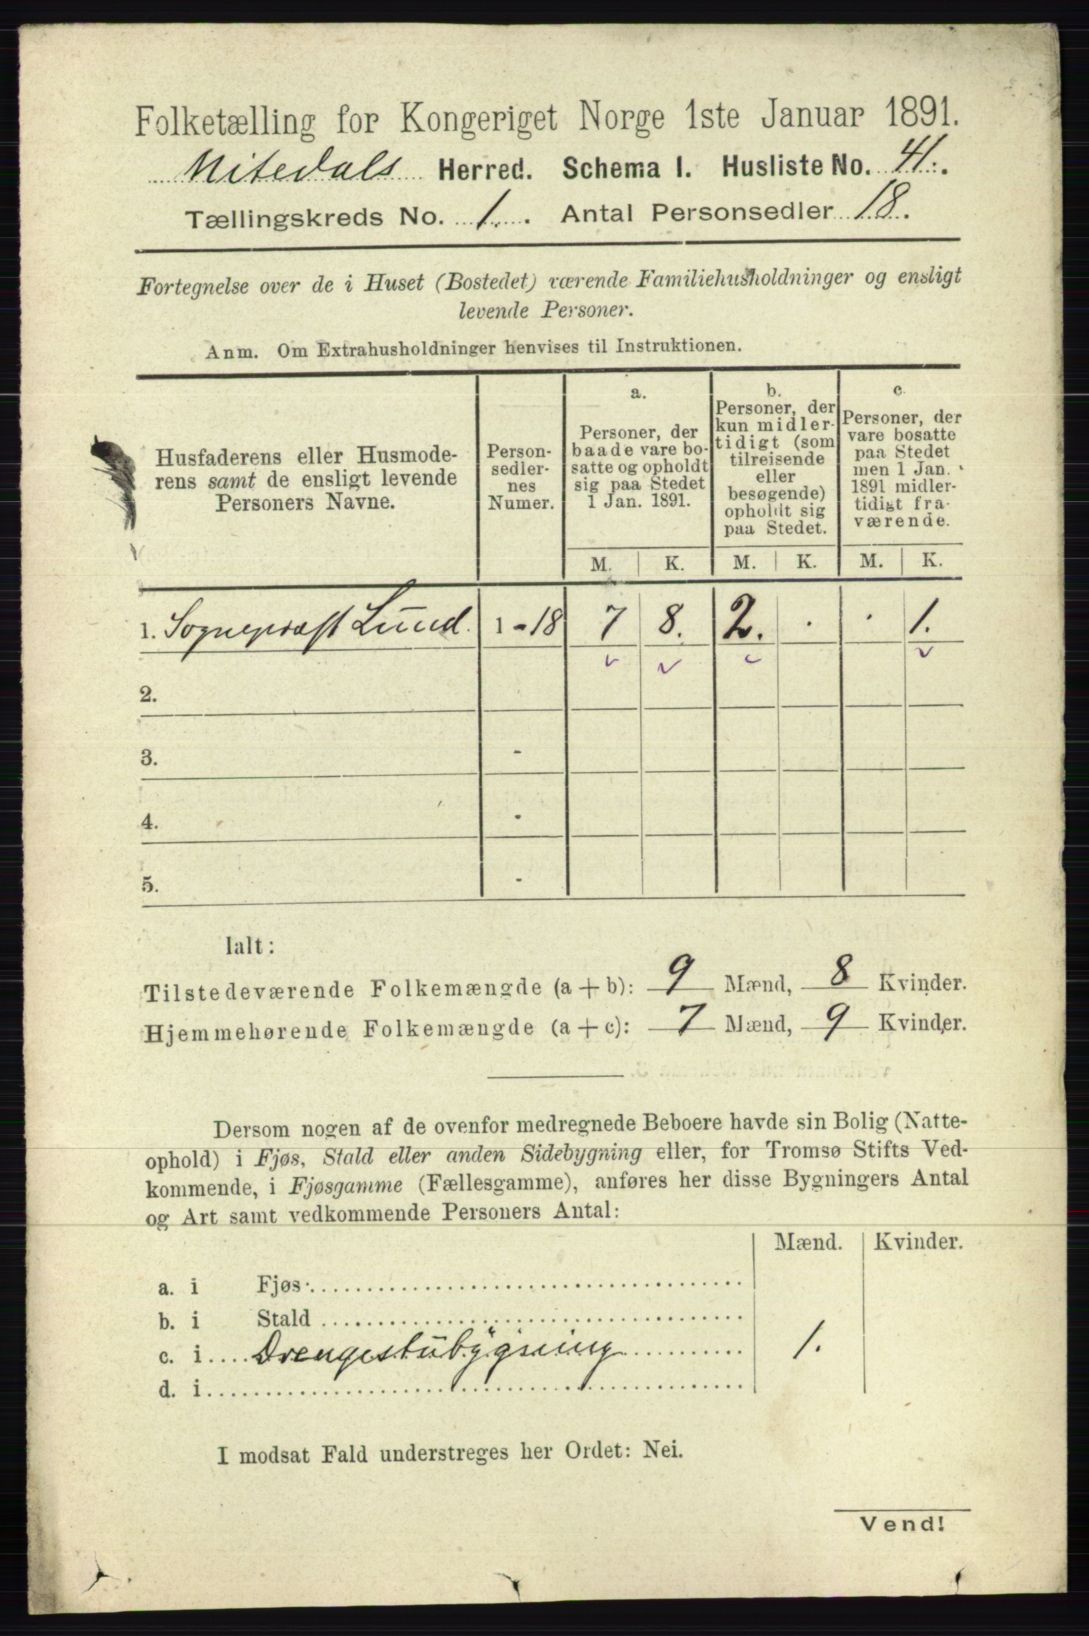 Folketælling for Kongeriget Norge 1ste Januar 1891.
Nitedals Herred. Schema I. Husliste No. 41.
Tællingskreds No. 1. Antal Personsedler 18.
Fortegnelse over de i Huset (Bostedet) værende Familiehusholdninger og ensligt
levende Personer.
Anm. Om Extrahusholdninger henvises til Instruktionen.
Husfaderens eller Husmode-
rens samt de ensligt levende
Personers Navne.
Person-
sedler-
nes
Numer.
a.
Personer, der
baade vare bo-
satte og opholdt
sig paa Stedet
1 Jan. 1891.
b.
Personer, der
kun midler-
tidigt (som
tilreisende
eller
besøgende)
opholdt sig
paa Stedet.
c.
Personer, der
vare bosatte
paa Stedet
men 1 Jan.
1891 midler-
tidigt fra-
værende.
M. K. M. K. M. K.
1. Sogneprest Lund. 1-18 7 8. 2. . . 1.
2.
3. -
4. -
5. -
Ialt:
Tilstedeværende Folkemængde (a + b): 9 Mænd, 8 Kvinder.
Hjemmehørende Folkemængde (a + c): 7 Mænd, 9 Kvinder.
Dersom nogen af de ovenfor medregnede Beboere havde sin Bolig (Natte-
ophold) i Fjøs, Stald eller anden Sidebygning eller, for Tromsø Stifts Ved-
kommende, i Fjøsgamme (Fællesgamme), anføres her disse Bygningers Antal
og Art samt vedkommende Personers Antal:
Mænd. Kvinder.
a. i Fjøs
b. i Stald
c. i Drengestubygning 1.
d. i
I modsat Fald understreges her Ordet: Nei.
Vend!